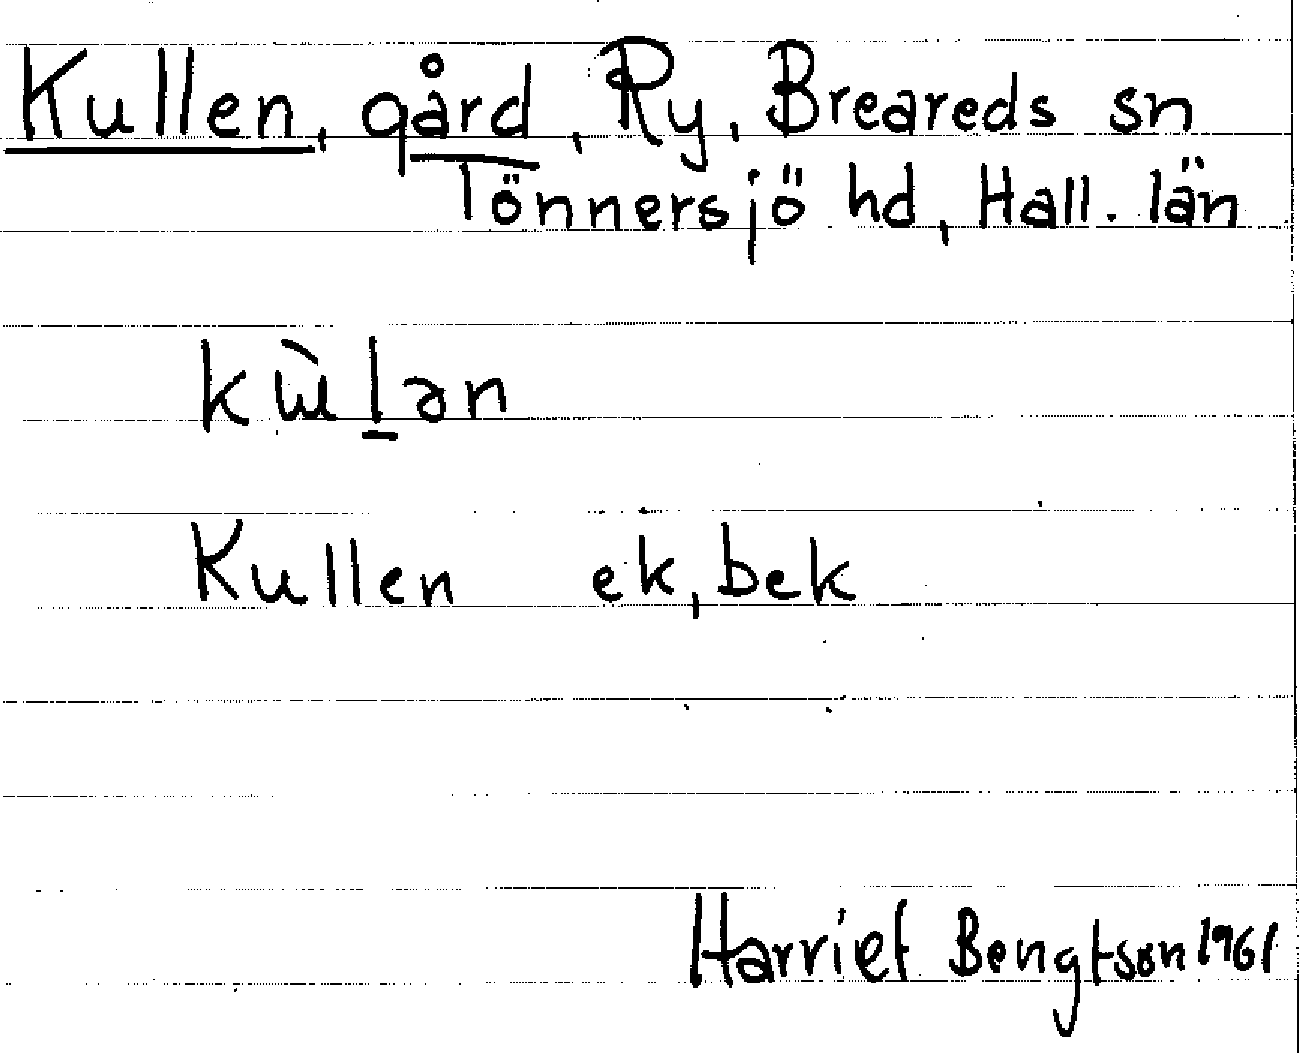 Kullen, gård, Ry, Breareds sn
Tönnersjö hd, Hall. län
kɯ̀lən
Kullen ek, bek
Harriet Bengtson 1961